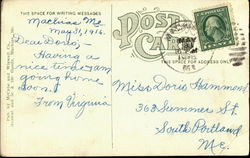 THIS SPACE FOR WRITING MESSAGES
POST CARD
Machias Me
May 31, 1916.
Dear Doris,-
Having a
nice time am
going home
soon.
From Virginia
MAY
THIS SPACE FOR ADDRESS ONLY
Miss Doris Hammond
363 Summer St.
South Portland
Me.